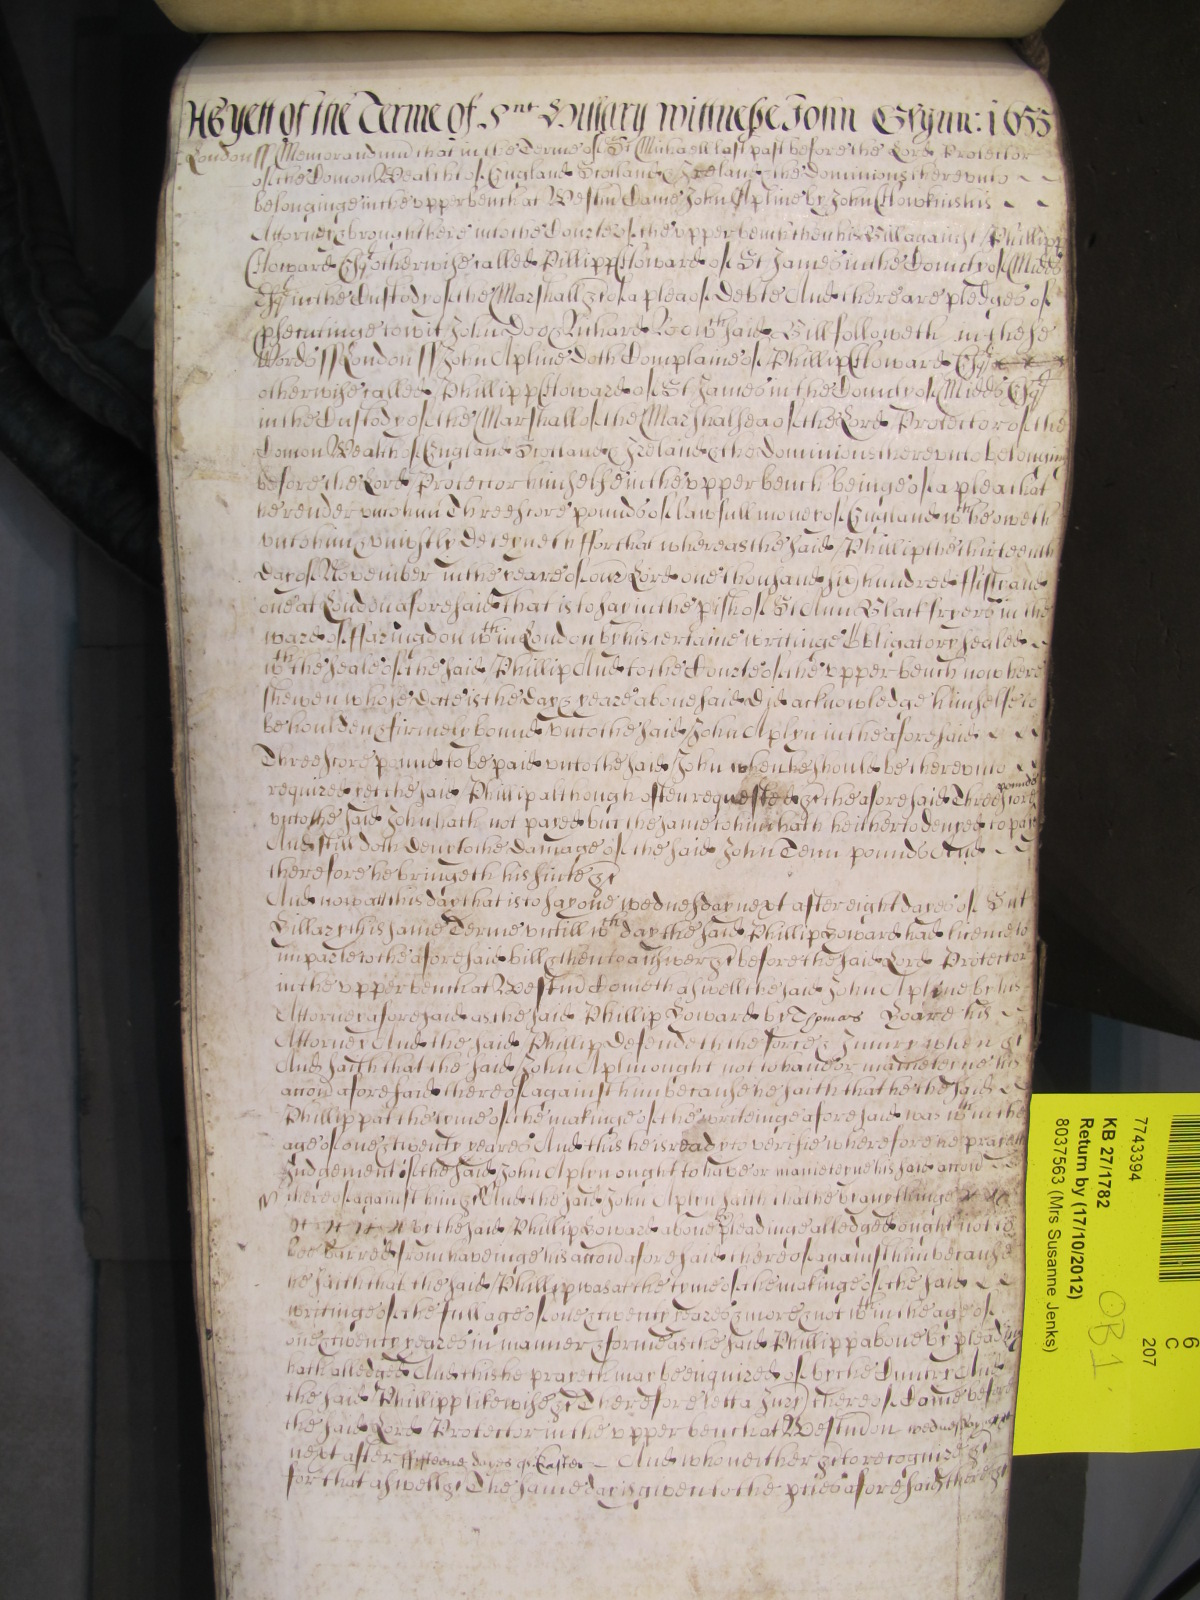 As yett of the Terme of Snt Hillary witnesse John Glynn: 1655
London ss Memorandum that in the Terme of St Michaell last past before the Lord Protector
of the Comon Wealth of England Scotland & Ireland & the Dominions therevnto
belonginge in the vpper bench at Westm Came John Apline by John Hawkins his
Attorney & brought here into the Courte of the vpper bench then his Bill against Phillipp
Howard Esqr otherwise called Phillipp Howard of St James in the County of Midds
Esqr in the Custody of the Marshall &c of a plea of Debte And there are pledges of
psecutinge to wit John Doo & Richard Roo wch said Bill followeth in these
Words ss London ss John Apline doth Complaine of Phillip Howard Esqr
otherwise called Phillipp Howard of St James in the County of Midds Esqr
in the Custody of the Marshall of the Marshalsea of the Lord Protector of the
Comon Wealth of England Scotland & Ireland & the Dominions therevnto belonging
before the Lord Protector himselfe in the vpper bench beinge of a plea that
he render vnto him Threescore pounds of lawfull money of England wch he oweth
vnto him & vniustly deteyneth ffor that whereas the said Phillip the thirteenth
day of November in the yeare of our Lord one thousand six hundred ffifty and
one at London aforesaid that is to say in the pish of St Ann Blackfryers in the
ward of ffaringdon wthin London by his certaine writinge Obligatory sealed
wth the seale of the said Phillip And to the Courte of the vpper bench now here
shewen whose date is the day & yeare aboue said did acknowledge himselfe to
be houlden & firmely bound vnto the said John Aplyn in the aforesaid
Threescore pound to be paid vnto the said John when he should be therevnto
required yet the said Phillip although often requested &c the aforesaid Threescore pounds
vnto the said John hath not payed but the same to him hath hitherto denyed to pay
And still doth deny to the damage of the said John Tenn pounds And
therefore he bringeth his suite &c
And now att this day that is to say one wednesday next after eight dayes of Snt
Hillary this same Terme vntill wch day the said Phillip Howard had licence to
imparle to the aforesaid bill & then to answer &c before the said Lord Protector
in the vpper bench at Westm Cometh aswell the said John Apline by his
Attorney aforesaid as the said Phillip Howard by Thomas Hoard his
Attorney And the said Phillip defendeth the force & Iniury when &c
And saith that the said John Aplin ought not to haue or mainteyne his
accon aforesaid thereof against him because he saith that he the said
Phillipp at the tyme of the makinge of the writeinge aforesaid was wthin the
age of one & twenty yeares And this he is ready to verifie wherefore he prayeth
Judgement if the said John Aplyn ought to haue or mainteyne his said accon
thereof against him &c And the said John Aplyn saith that he by any thinge
by the said Phillip Howard aboue pleadinge alledged ought not to
bee barred from haveinge his accon aforesaid thereof against him because
he saith that the said Phillipp was at the tyme of the makinge of the said
writinge of the full age of one & twenty yeares & more & not wthin the age of
one & twenty yeares in manner & forme as the said Phillipp aboue by pleading
hath alledged And this he prayeth may be enquired of by the Cuntry And
the said Phillipp likewise &c Therefore lett a Jury thereof Come before
the said Lord Protector in the vpper bench at Westm on wednesday next
next after ffifteene dayes of Easter And who neither &c to recognize &c
for that aswell &c The same day is given to the pties aforesaid there &c
7743394
KB 27/1782
Return by (17/10/2012)
8037563 (Mrs Susanne Jenks)
6
C
207
OB1